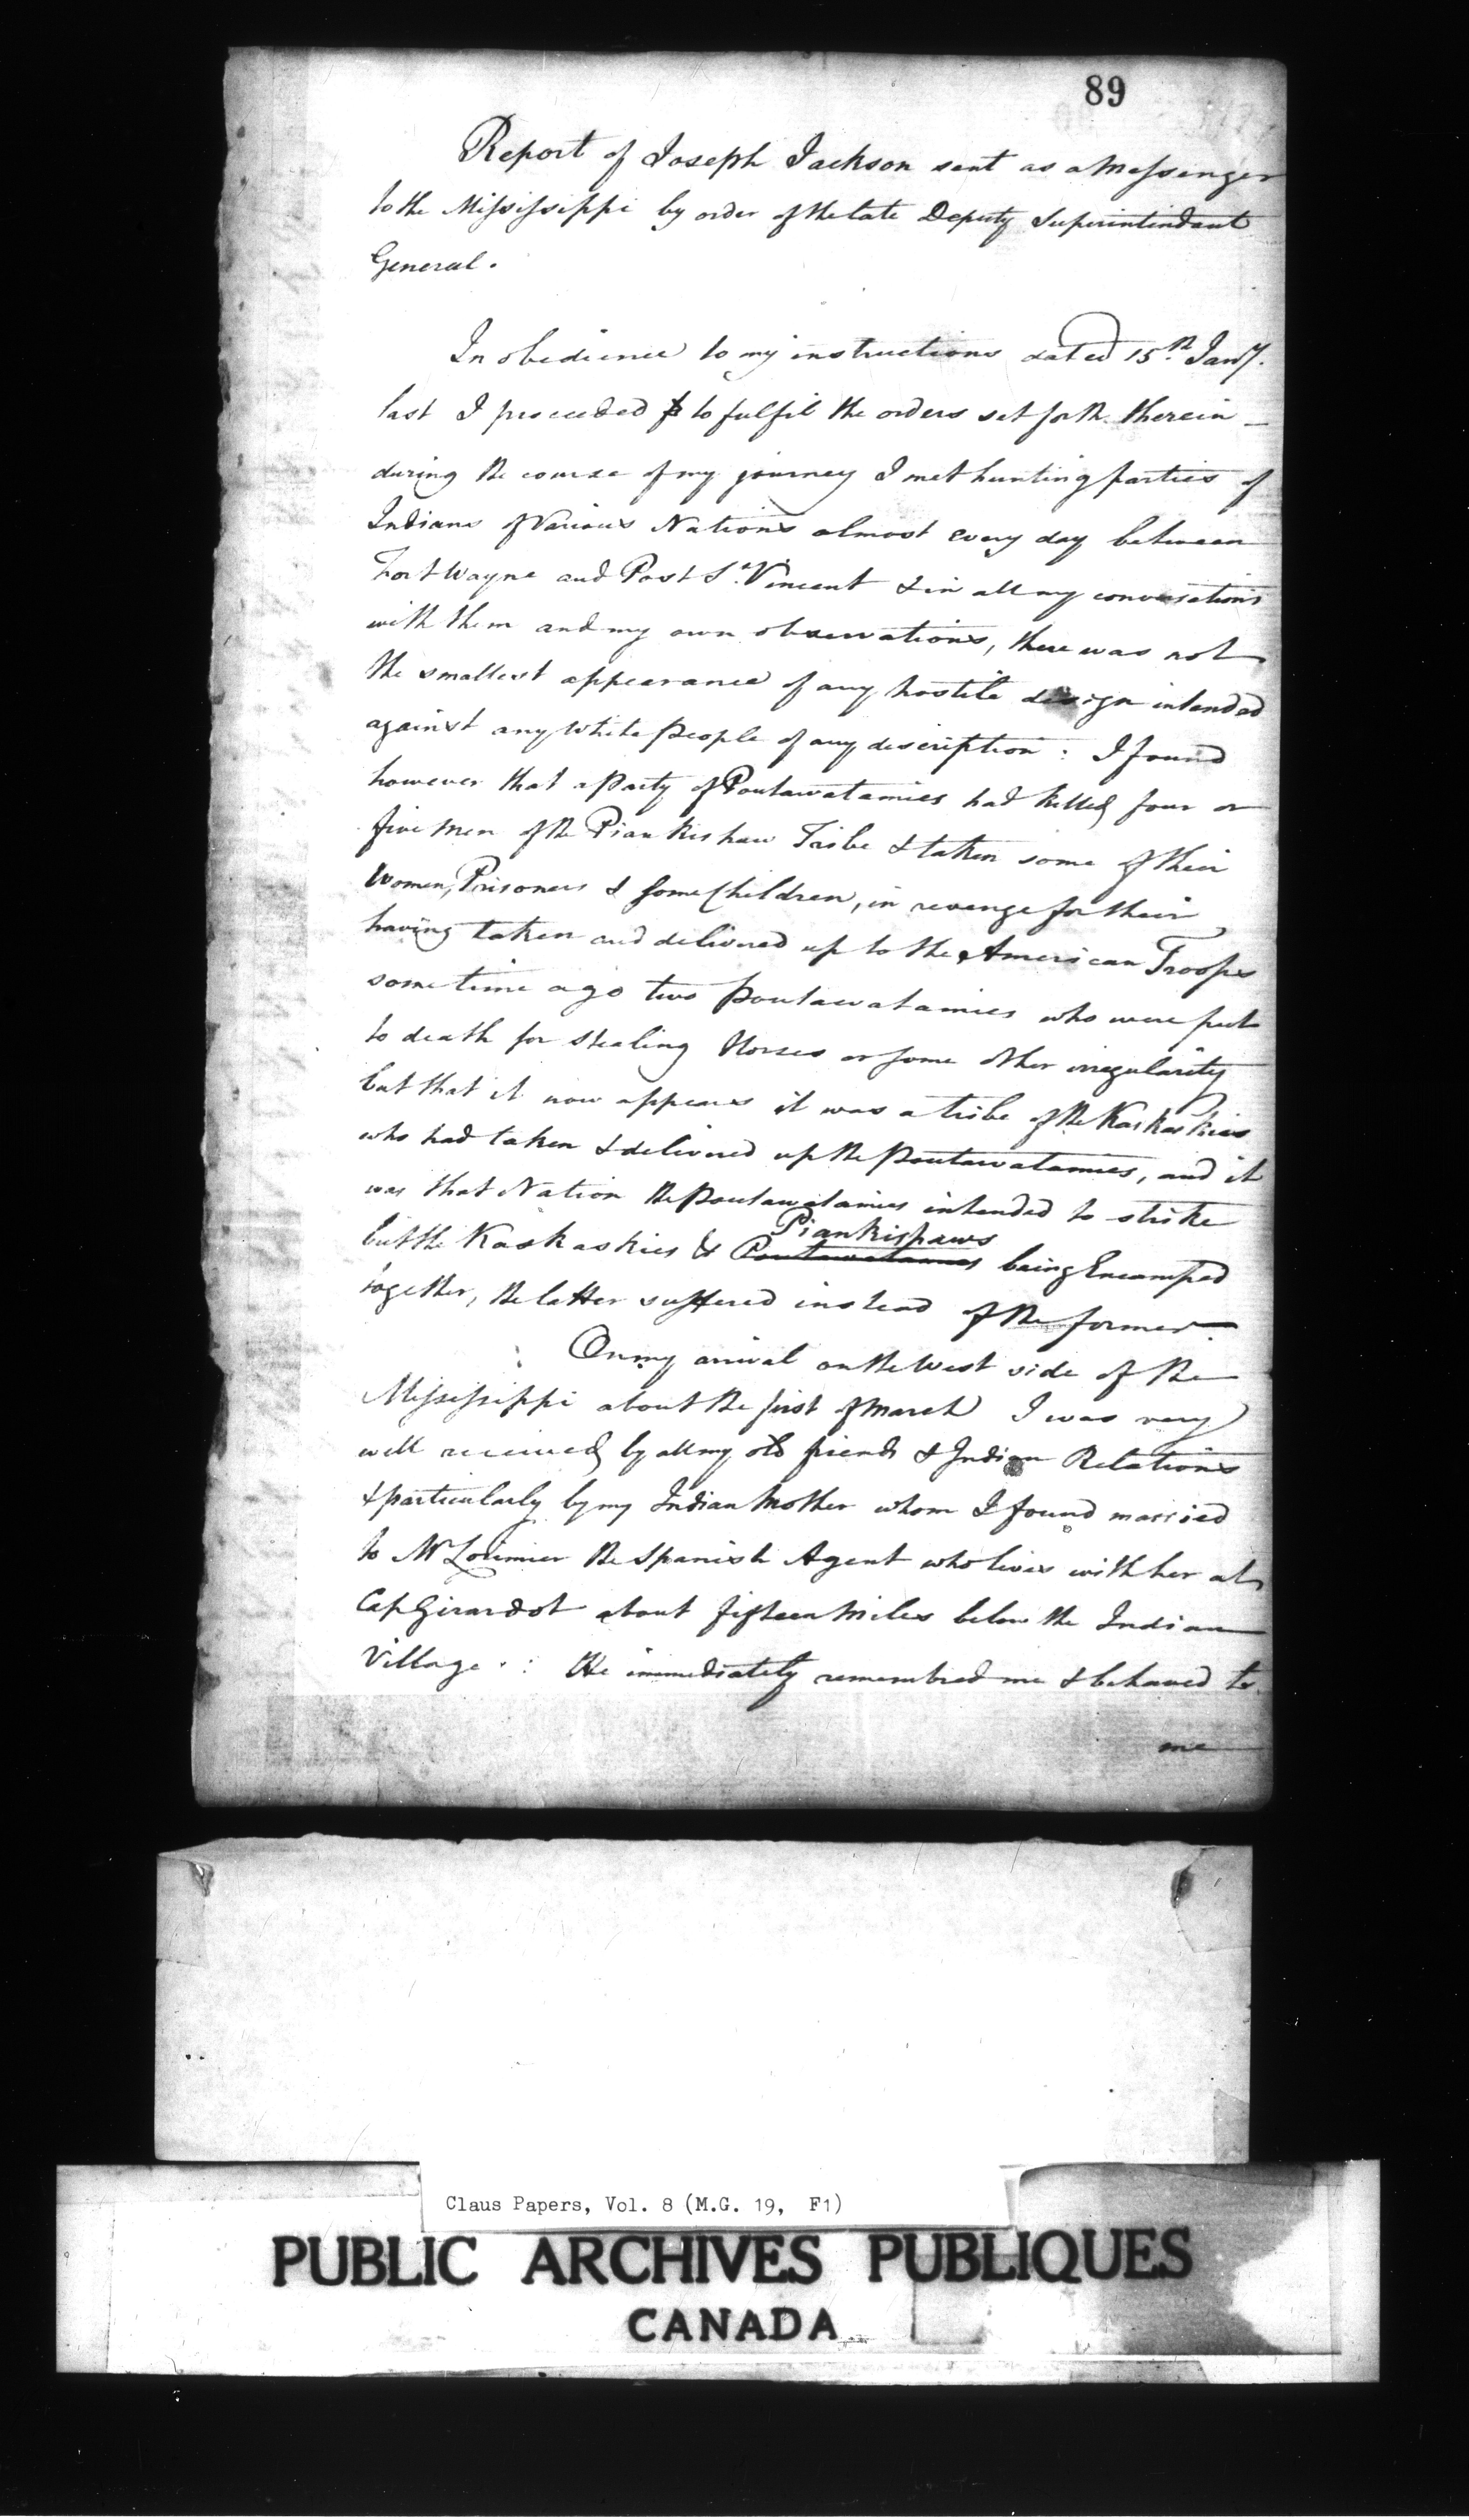 89
Report of Joseph Jackson sent as a Messenger
to the Mississippi by order of the late Deputy Superintindant
General.
In obedience to my instructions dated 15.th Jany.
last I proceeded to to fulfil the orders set forth therein —
during the course of my journey I met hunting parties of
Indians of Various Nations almost every day between
Fort Wayne and Post St. Vincent & in all my conversations
with them and my own observations, there was not
the smallest appearance of any hostile design intended
against any White people of any description : I found
however that a Party of Poutawatamies had killed four or
five men of the Piankishaw Tribe & taken some of their
Women, Prisoners & some Children, in revenge for their
having taken and delivered up to the American Troops
sometime ago two Poutawatamies who were put
to death for stealing Horses or some other irregularity
but that it now appears it was a tribe of the Kaskaskies
who had taken & delivered up the Poutawatamies, and it
was that Nation the Poutawatamies intended to strike
Piankishaws
but the Kaskaskies & Poutawatamies being Encamped
together, the latter suffered instead of the former.
On my arrival on the West side of the
Mississippi about the first of March I was very
well received by all my old friends & Indian Relations
& particularly by my Indian Mother whom I found married
to Mr Lorimier the Spanish Agent who lives with her at
Cap Girardot about fifteen Miles below the Indian
Village. : He immediately remembred me & behaved to
me
Claus Papers, Vol. 8 (M.G. 19, F1)
PUBLIC ARCHIVES PUBLIQUES
CANADA